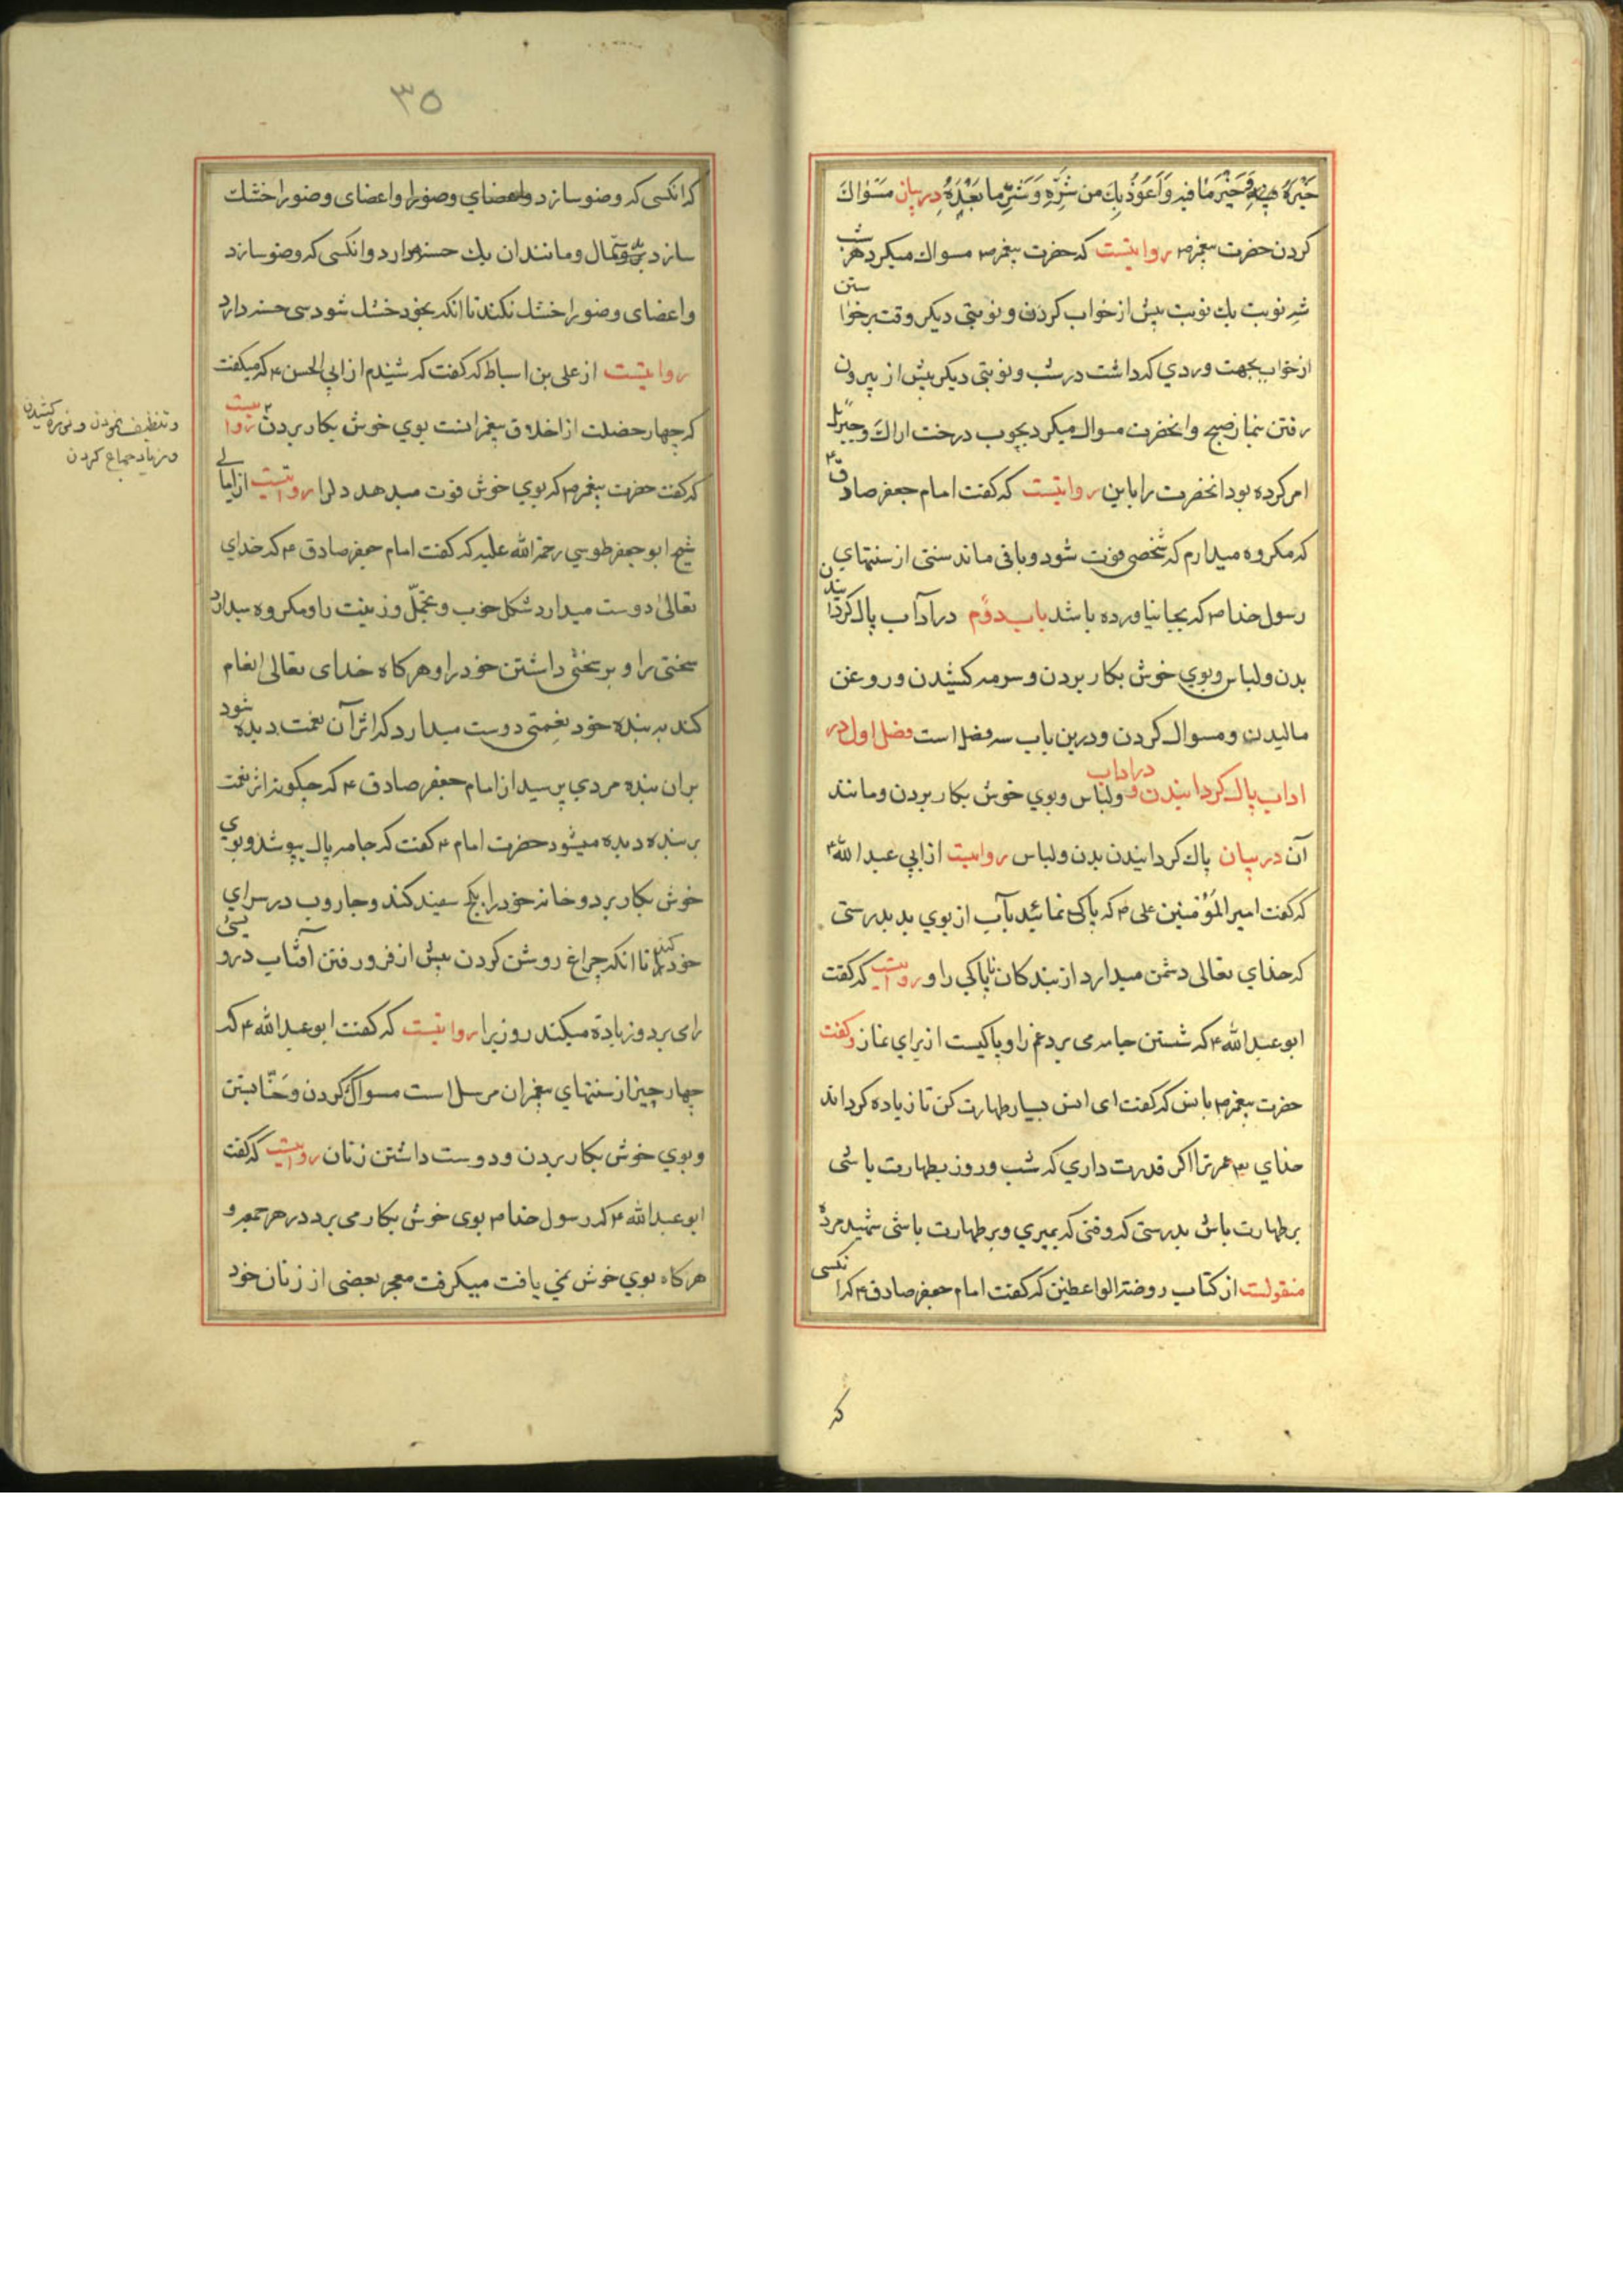 خَیْرَهُ وَخَیْرَ مٰا فیهِ وَاَعُوذُ بِكَ مِن شَرِّهِ وَشَرِّ ما بَعْدَهُ در بیان مسواك
کردن حضرت پیغمبر ص روایتست که حضرت پیغمبر ص مسواك میکرد هر شب
سه نوبت یك نوبت پیش از خواب کردن و نوبتی دیکر وقت برخواستن
از خواب بجهت وردی که داشت در شب و نوبتی دیکر پیش از بیرون
رفتن بنماز صبح و انحضرت مسواك میکرد بچوب درخت اراك و جبرئیل
امر کرده بود انحضرت را باین روایتست که کفت امام جعفر صادق ع
که مکروه میدارم که شخصی فوت شود و باقی ماند سنتی از سنتهای
رسول خدا ص که بجا نیاورده باشد باب دوّم در آداب پاك کردانیدن
بدن و لباس و بوی خوش بکار بردن و سرمه کشیدن و روغن
مالیدن و مسواك کردن و درین باب سه فصل است فصل اول در
اداب پاك کردانیدن در اداب ولباس و بوی خوش بکار بردن و مانند
آن در بیان پاك کردانیدن بدن ولباس روایتست از ابی عبد الله ع
که کفت امیر المؤمنین علی ع که پاکی نمائید بآب از بوی بد بدرستی
که خدای تعالی دشمن میدارد از بندکان ناپاکی را و روایتست که کفت
ابو عبد الله ع که شستن جامه می برد غم را و پاکیست از برای نماز و کفت
حضرت پیغمبر ص بانس که کفت ای انس بسیار طهارت کن تا زیاده کرداند
خدای تع عمر ترا اکر قدرت داری که شب و روز بطهارت باشی
بر طهارت باش بدرستی که وقتی که بمیری و بر طهارت باشی شهید مرده
منقولست از کتاب روضة الواعظین که کفت امام جعفر صادق ع که انکسی
که
٣٥
که انکسی که وضو سازد و اعضای وضو را خشك
سازد و مانند ان یك حسنه دارد و انکسی که وضو سازد
و اعضای وضو را خشك نکند تا انکه بخود خشك شود سی حسنه دارد
روایتست از علی بن اسباط که کفت که شنیدم از ابی الحسن ع که میکفت
که چهار خصلت از اخلاق پیغمبرانست بوی خوش بکار بردن روایتست
و تنظیف نمودن و نوره کشیدن
و زیاد جماع کردن
که کفت حضرت پیغمبر ص که بوی خوش قوت میدهد دلرا روایتست از امالی
شیخ ابو جعفر طوسی رحمة الله علیه که کفت امام جعفر صادق ع که خدای
تعالی دوست میدارد شکل خوب و تجمّل و زینت را و مکروه میدارد
سختی را و بر سختی داشتن خود را و هرکاه خدای تعالی انعام
کند به بنده خود نعمتی دوست میدارد که اثر آن نعمت دیده شود
بران بنده مردی پرسید از امام جعفر صادق ع که چکونه اثر نعمت
بر بنده دیده میشود حضرت امام ع کفت که جامه پاك بپوشد و بوی
خوش بکار برد و خانه خود را بکچ سفید کند و جاروب در سرای
خود کند تا انکه چراغ روشن کردن پیش از فرو رفتن آفتاب درویشی
را می برد و زیاده میکند روزیرا روایتست که کفت ابو عبد الله ع که
چهار چیز از سنتهای پیغمبران مرسل است مسواك کردن و حنّا بستن
و بوی خوش بکار بردن و دوست داشتن زنان روایتست که کفت
ابو عبد الله ع که رسول خدا ص بوی خوش بکار می برد در هر جمعه و
هرکاه بوی خوش نمی یافت میکرفت معجر بعضی از زنان خود